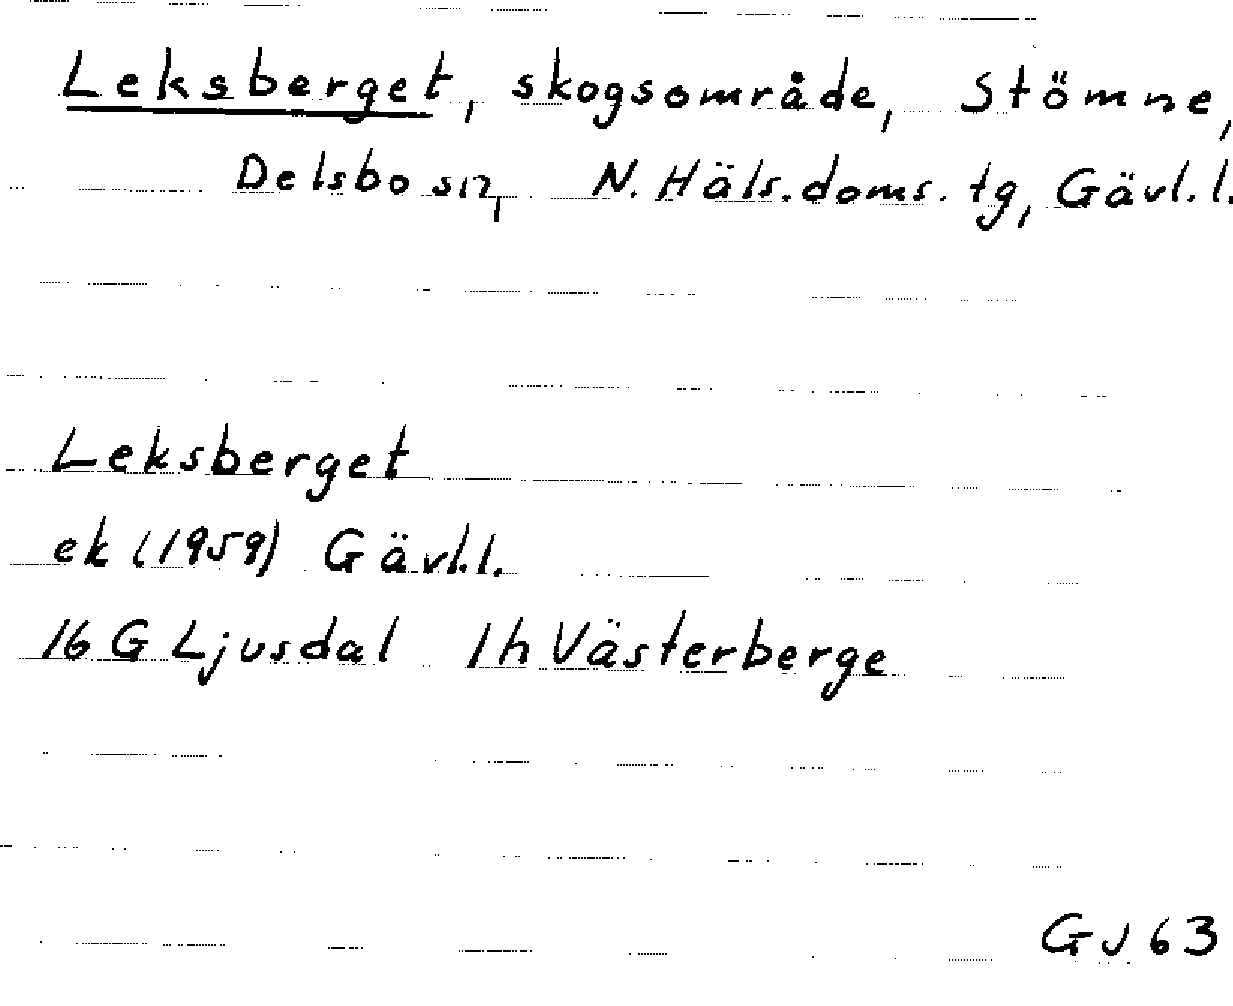 Leksberget, skogsområde, Stömne,
Delsbo sn, N. Häls. doms. tg, Gävl. l.
Leksberget
ek (1959) Gävl. l.
16 G Ljusdal 1h Västerberge
GJ 63